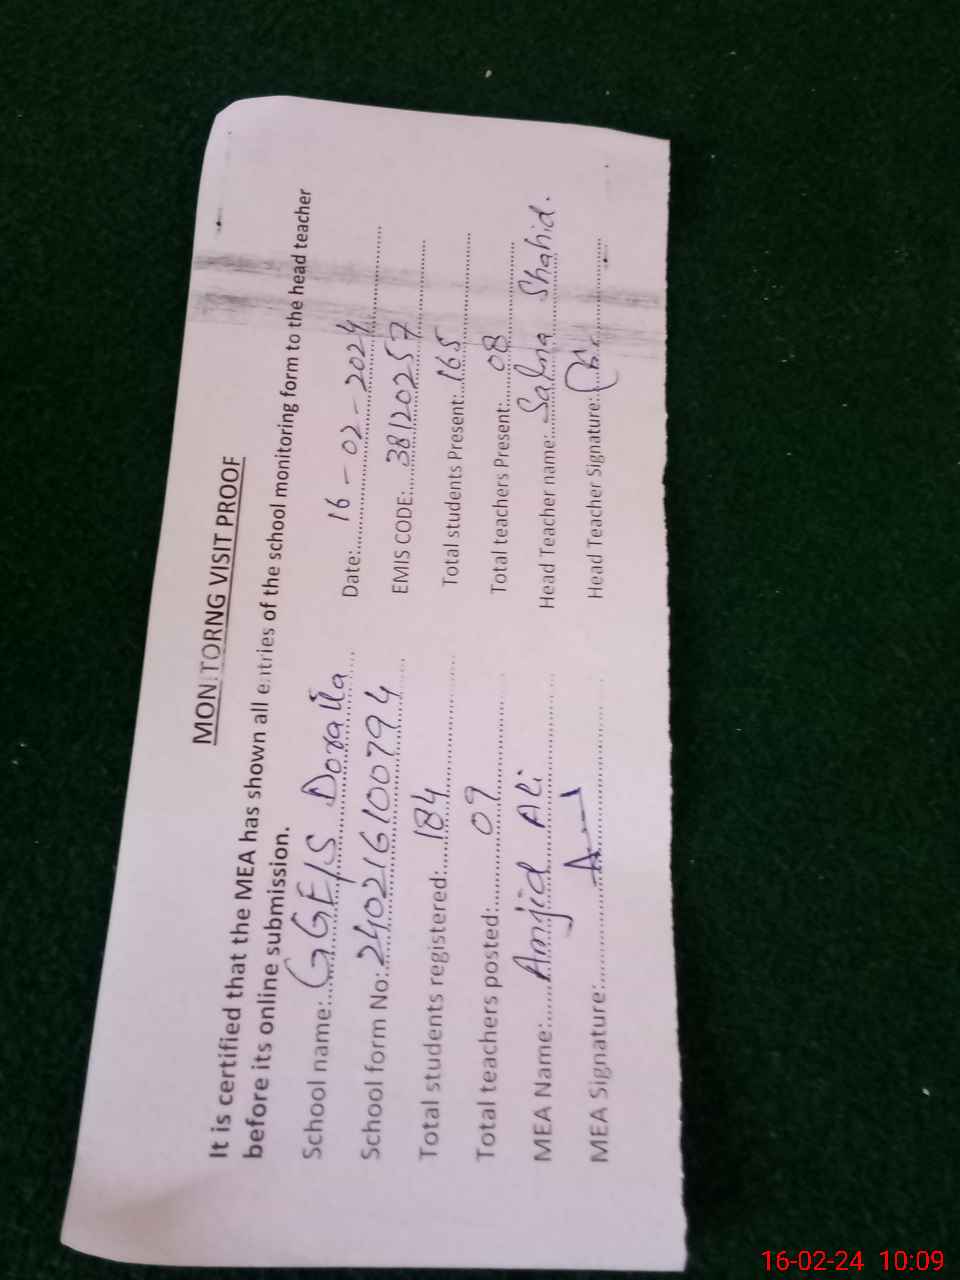 MONITORNG VISIT PROOF
It is certified that the MEA has shown all entries of the school monitoring form to the head teacher
before its online submission.
School name:..... GGE/S Doralla Date:..... 16-02-2024
School form No:..... 240216100794 EMIS CODE:..... 38120257
Total students registered:..... 184 Total students Present:..... 165
Total teachers posted:..... 09 Total teachers Present:..... 08
MEA Name:..... Amjid Ali Head Teacher name:..... Salma Shahid.
MEA Signature:..... Head Teacher Signature:.....
16-02-24 10:09